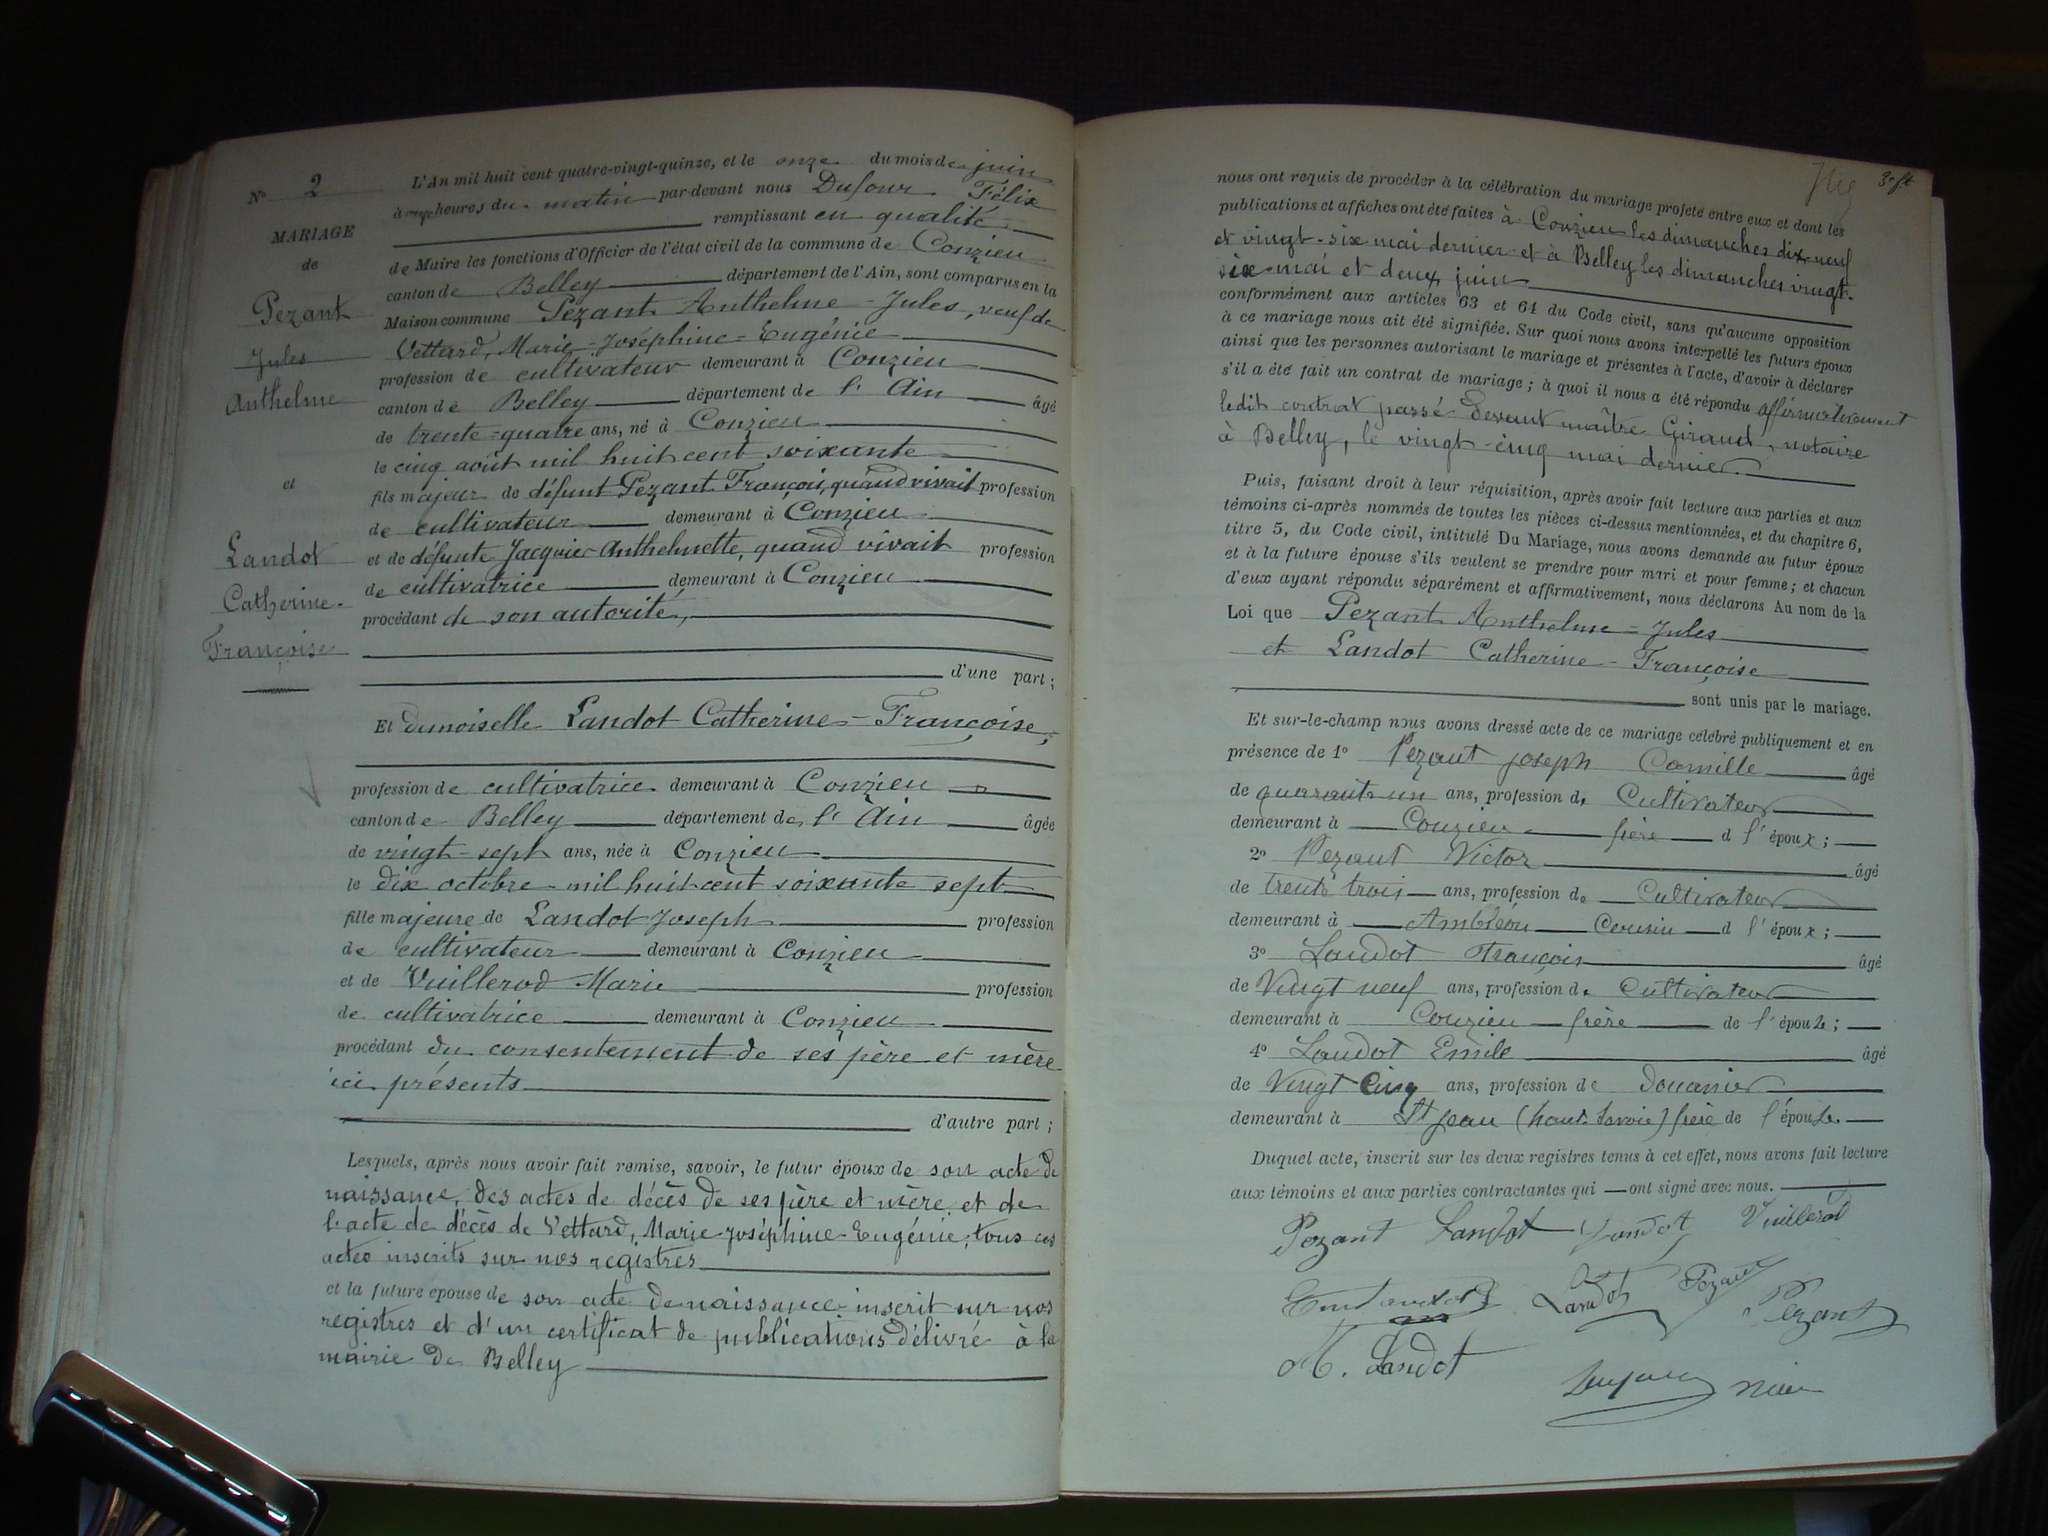 N° 2
MARIAGE
de
Pezant
Jules
Anthelme
et
Landot
Catherine-
Françoise
L'An mil huit cent quatre-vingt-quinze, et le onze du mois de juin
à onze heures du matin par-devant nous Dufour Félix
remplissant en qualité
de Maire les fonctions d'Officier de l'état civil de la commune de Conzieu
canton de Belley département de l'Ain, sont comparus en la
Maison commune Pezant Anthelme-Jules, veuf de
Vettard, Marie-Joséphine-Eugénie
profession de cultivateur demeurant à Conzieu
canton de Belley département de l'Ain âgé
de trente-quatre ans, né à Conzieu
le cinq août mil huit cent soixante
fils majeur de défunt Pezant François, quand vivait profession
de cultivateur demeurant à Conzieu
et de défunte Jacquier Anthelmette, quand vivait profession
de cultivatrice demeurant à Conzieu
procédant de son autorité,
d'une part;
Et demoiselle Landot Catherine-Françoise,
profession de cultivatrice demeurant à Conzieu
canton de Belley département de l'Ain âgée
de vingt-sept ans, née à Conzieu
le dix octobre mil huit cent soixante sept
fille majeure de Landot Joseph profession
de cultivateur demeurant à Conzieu
et de Vuillerod Marie profession
de cultivatrice demeurant à Conzieu
procédant du consentement de ses père et mère
ici présents
d'autre part;
Lesquels, après nous avoir fait remise, savoir, le futur époux de son acte de
naissance, des actes de décès de ses père et mère et de
l'acte de décès de Vettard, Marie-Joséphine-Eugénie, tous ces
actes inscrits sur nos registres
et la future épouse de son acte de naissance inscrit sur nos
registres et d'un certificat de publications délivré à la
mairie de Belley
nous ont requis de procéder à la célébration du mariage projeté entre eux et dont les
publications et affiches ont été faites à Conzieu les dimanches dix-neuf
et vingt-six mai dernier et à Belley les dimanches vingt-
six mai et deux juin
conformément aux articles 63 et 64 du Code civil, sans qu'aucune opposition
à ce mariage nous ait été signifiée. Sur quoi nous avons interpellé les futurs époux
ainsi que les personnes autorisant le mariage et présentes à l'acte, d'avoir à déclarer
s'il a été fait un contrat de mariage; à quoi il nous a été répondu affirmativement
ledit contrat passé devant maître Giraud, notaire
à Belley, le vingt-cinq mai dernier.
Puis, faisant droit à leur réquisition, après avoir fait lecture aux parties et aux
témoins ci-après nommés de toutes les pièces ci-dessus mentionnées, et du chapitre 6,
titre 5, du Code civil, intitulé Du Mariage, nous avons demandé au futur époux
et à la future épouse s'ils veulent se prendre pour mari et pour femme; et chacun
d'eux ayant répondu séparément et affirmativement, nous déclarons Au nom de la
Loi que Pezant Anthelme-Jules
et Landot Catherine-Françoise
sont unis par le mariage.
Et sur-le-champ nous avons dressé acte de ce mariage célébré publiquement et en
présence de 1° Pezant Joseph Camille âgé
de quarante un ans, profession de Cultivateur
demeurant à Conzieu frère d l'époux;
2° Pezant Victor âgé
de trente trois ans, profession de Cultivateur
demeurant à Ambléon Cousin d l'époux;
3° Landot François âgé
de Vingt neuf ans, profession de Cultivateur
demeurant à Conzieu frère de l'épouse;
4° Landot Emile âgé
de Vingt Cinq ans, profession de Douanier
demeurant à St Jean (haute Savoie) frère de l'épouse
Duquel acte, inscrit sur les deux registres tenus à cet effet, nous avons fait lecture
aux témoins et aux parties contractantes qui ont signé avec nous.
Pezant Landot Landot Vuillerod
Landot Pezant Pezant
M. Landot
Dufour